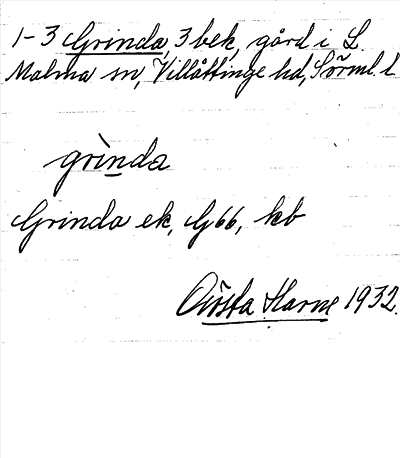 1-3 Grinda, 3 bek, gård i L.
Malma sn, Villåttinge hd, Sörml. l
grìnda
Grinda ek, G66, kb
Gösta Harne 1932.